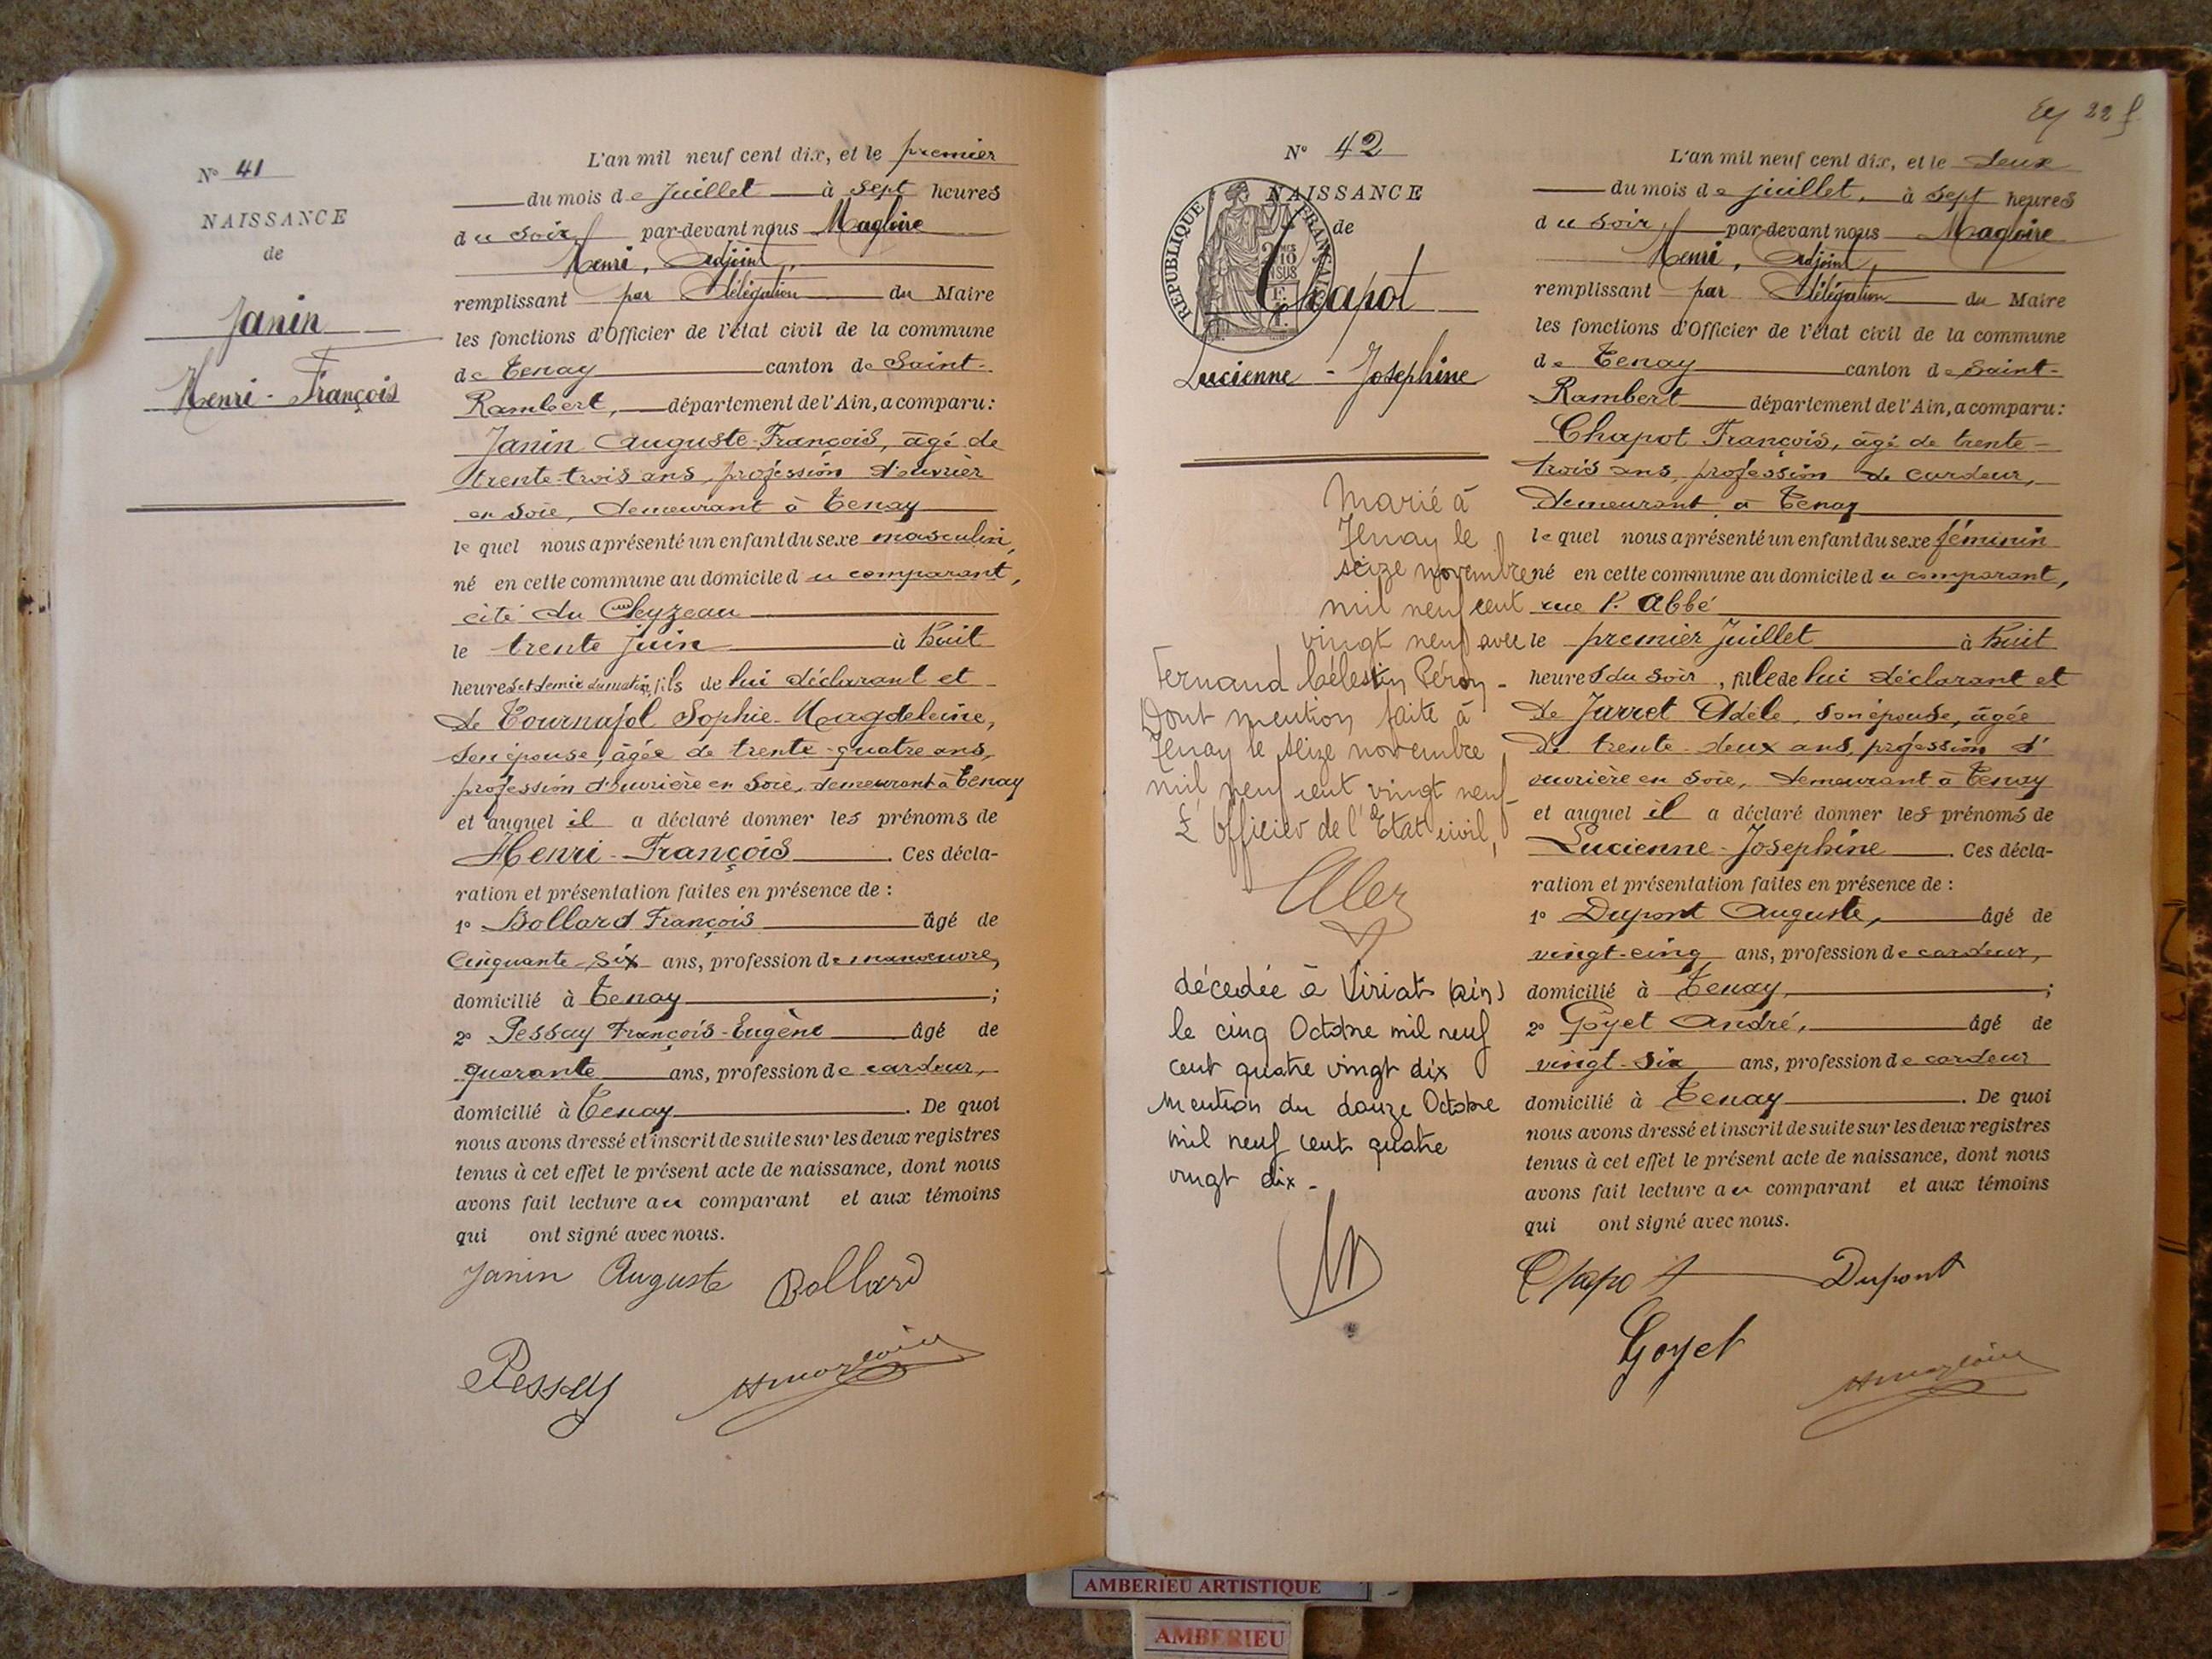 N° 41
NAISSANCE
de
Janin
Henri-François
L'an mil neuf cent dix, et le premier
du mois de Juillet à sept heures
du soir par-devant nous Magloire
Henri, Adjoint,
remplissant par Délégation du Maire
les fonctions d'Officier de l'état civil de la commune
de Tenay canton de Saint-
Rambert, département de l'Ain, a comparu:
Janin Auguste-François, âgé de
trente-trois ans, profession d'ouvrier
en soie, demeurant à Tenay
lequel nous a présenté un enfant du sexe masculin,
né en cette commune au domicile du comparant,
cité du Cleyzeau
le trente juin à huit
heures et demie du matin, fils de lui déclarant et
de Tournafol Sophie-Magdeleine,
son épouse, âgée de trente-quatre ans,
profession d'ouvrière en soie, demeurant à Tenay
et auquel il a déclaré donner les prénoms de
Henri-François. Ces décla-
ration et présentation faites en présence de :
1° Bollard François âgé de
cinquante-six ans, profession de manoeuvre,
domicilié à Tenay ;
2° Pessay François-Eugène âgé de
quarante ans, profession de cardeur,
domicilié à Tenay. De quoi
nous avons dressé et inscrit de suite sur les deux registres
tenus à cet effet le présent acte de naissance, dont nous
avons fait lecture au comparant et aux témoins
qui ont signé avec nous.
Janin Auguste Bollard
Pessay Hmagloire
22
N° 42
NAISSANCE
de
REPUBLIQUE FRANÇAISE
Chapot
Lucienne-Josephine
Marié à
Tenay le
seize novembre
mil neuf cent
vingt neuf avec
Fernand Célestin Péron-
Dont mention faite à
Tenay le seize novembre
mil neuf cent vingt neuf-
L'Officier de l'Etat civil,
décedée à Viriat (ain)
le cinq Octobre mil neuf
cent quatre vingt dix
Mention du douze Octobre
mil neuf cent quatre
vingt dix -
L'an mil neuf cent dix, et le deux
du mois de juillet, à sept heures
du soir, par-devant nous Magloire
Henri, Adjoint,
remplissant par Délégation du Maire
les fonctions d'Officier de l'état civil de la commune
de Tenay canton de Saint-
Rambert département de l'Ain, a comparu:
Chapot François, âgé de trente-
trois ans, profession de cardeur,
demeurant à Tenay
lequel nous a présenté un enfant du sexe féminin
né en cette commune au domicile du comparant,
rue P. Abbé
le premier Juillet à huit
heures du soir, fille de lui déclarant et
de Jarret Adèle, son épouse, âgée
de trente-deux ans, profession d'
ouvrière en soie, demeurant à Tenay
et auquel il a déclaré donner les prénoms de
Lucienne-Josephine. Ces décla-
ration et présentation faites en présence de :
1° Dupont Auguste, âgé de
vingt-cinq ans, profession de cardeur,
domicilié à Tenay, ;
2° Goyet André, âgé de
vingt-six ans, profession de cardeur
domicilié à Tenay. De quoi
nous avons dressé et inscrit de suite sur les deux registres
tenus à cet effet le présent acte de naissance, dont nous
avons fait lecture au comparant et aux témoins
qui ont signé avec nous.
Chapot Dupont
Goyet
Hmagloire
AMBERIEU ARTISTIQUE
AMBERIEU